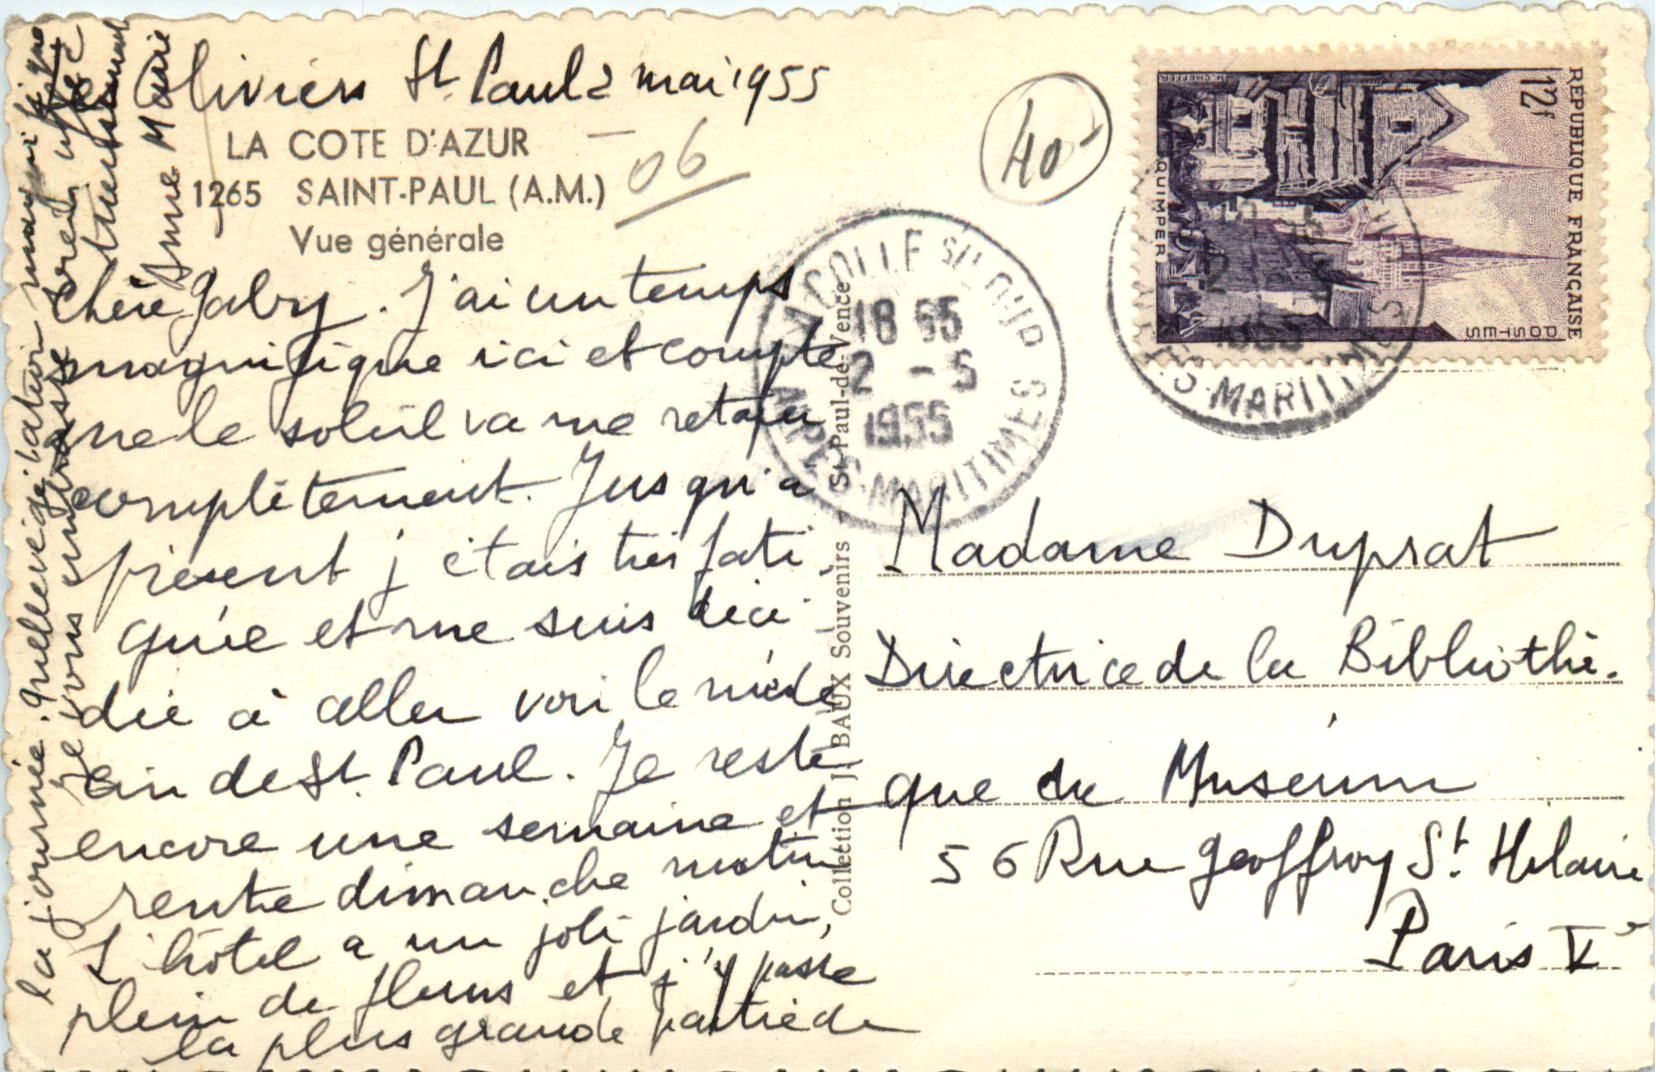 Oliviers St. Paul 2 mai 1955
LA COTE D'AZUR
1265 SAINT-PAUL (A.M.)
Vue générale
06
40-
Chère Gabry. J'ai un temps
magnifique ici et compte
que le soleil va me retaper
complètement. Jusqu'à
présent j'étais très fati-
guée et me suis déci-
dée à aller voir le méde
cin de St. Paul. Je reste
encore une semaine et
rentre dimanche matin
L'hôtel a un joli jardin,
plein de fleurs et j'y passe
la plus grande partie de
la journée. Quelle végétation magnifique
Je vous embrasse bien
affectueusement
Anne Marie
Collection J. BAUX Souvenirs - St-Paul-de-Vence
LA COLLE S/LOUP
18 55
2 - 5
1955
ALPES-MARITIMES
RÉPUBLIQUE FRANÇAISE
12f
POSTES
QUIMPER
2
1955
ALPES-MARITIMES
Madame Duprat
Directrice de la Bibliothè-
que du Muséum
56 Rue Geoffroy St. Hilaire
Paris Ve